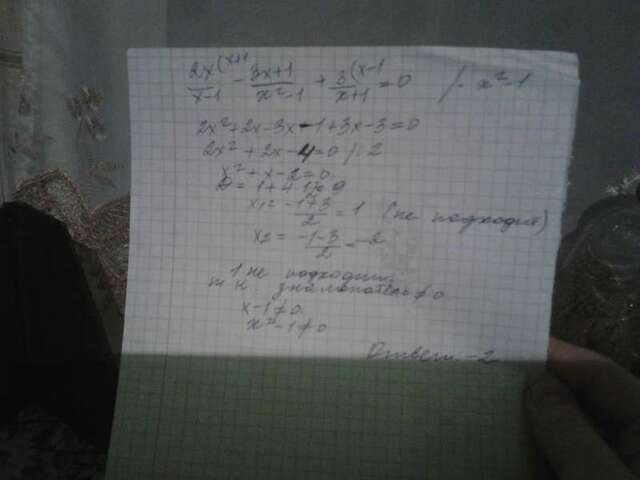 2x(x+1 / x-1 - 3x+1 / x²-1 + 3(x-1 / x+1 = 0 /· x²-1
2x²+2x-3x-1+3x-3=0
2x²+2x-4=0 /:2
x²+x-2=0
D=1+4
x1= = 1 (не подходит)
x2= -1-3 / 2 = -2
1 не подходит
т к знаменатель≠0
x-1≠0
x²-1≠0
Ответ -2